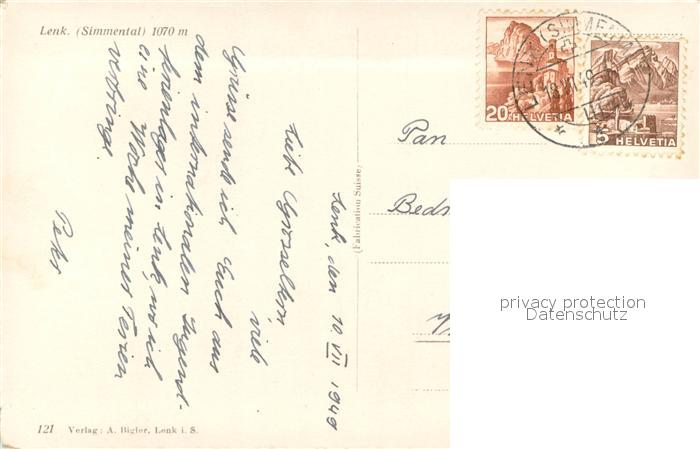 Lenk. (Simmental) 1070 m
Lenk, den 10. VII 1949
Liebe Grosseltern
viele
Grüsse sende ich Euch aus
dem internationalen Jugend-
ferienlager in Lenk, wo ich
eine Woche meiner Ferien
verbringe.
121 Verlag: A. Bigler, Lenk i. S.
(Fabrication Suisse)
20 HELVETIA
5 HELVETIA
Pan
privacy protection
Datenschutz